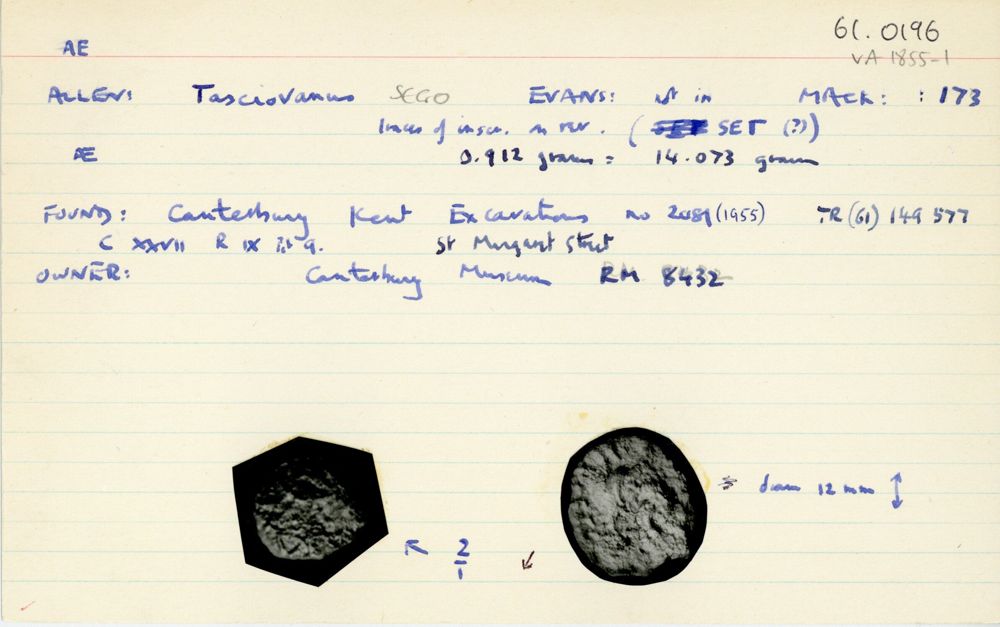 61.0196
AE
VA 1855-1
ALLEN: Tasciovanus SEGO EVANS: not in MACK: : 173
traces of inscr. on rev. ( SET (?))
Æ
0.912 grams = 14.073 grains
FOUND: Canterbury Kent Excavations no (1955) TR (61) 149 577
C XXVII R IX 9. St Margaret Street
OWNER: Canterbury Museum RM 8432
diam 12 mm
2
1